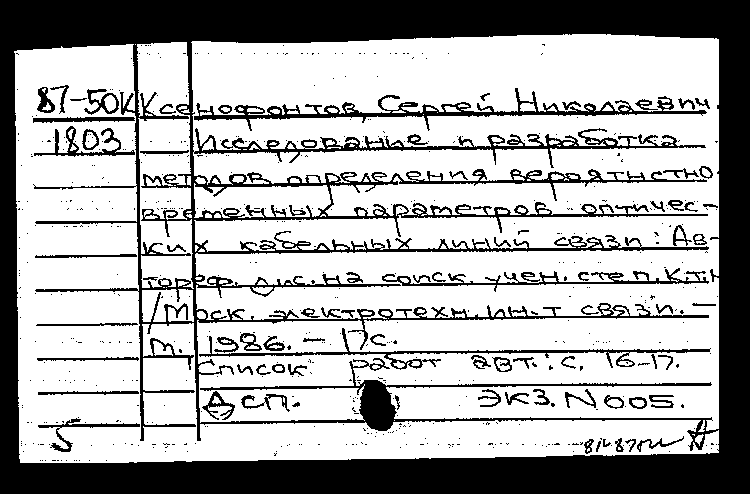 87-50К Ксенофонтов, Сергей Николаевич.
1803 Исследование и разработка
методов определения вероятностно-
временных параметров оптичес-
ких кабельных линий связи: Ав-
тореф. дис. на соиск. учен. степ. к.т.н
/Моск. электротехн. ин-т связи. —
М., 1986. — 17с.
Список работ авт.: с. 16-17.
Дсп. Экз. N 005.
5